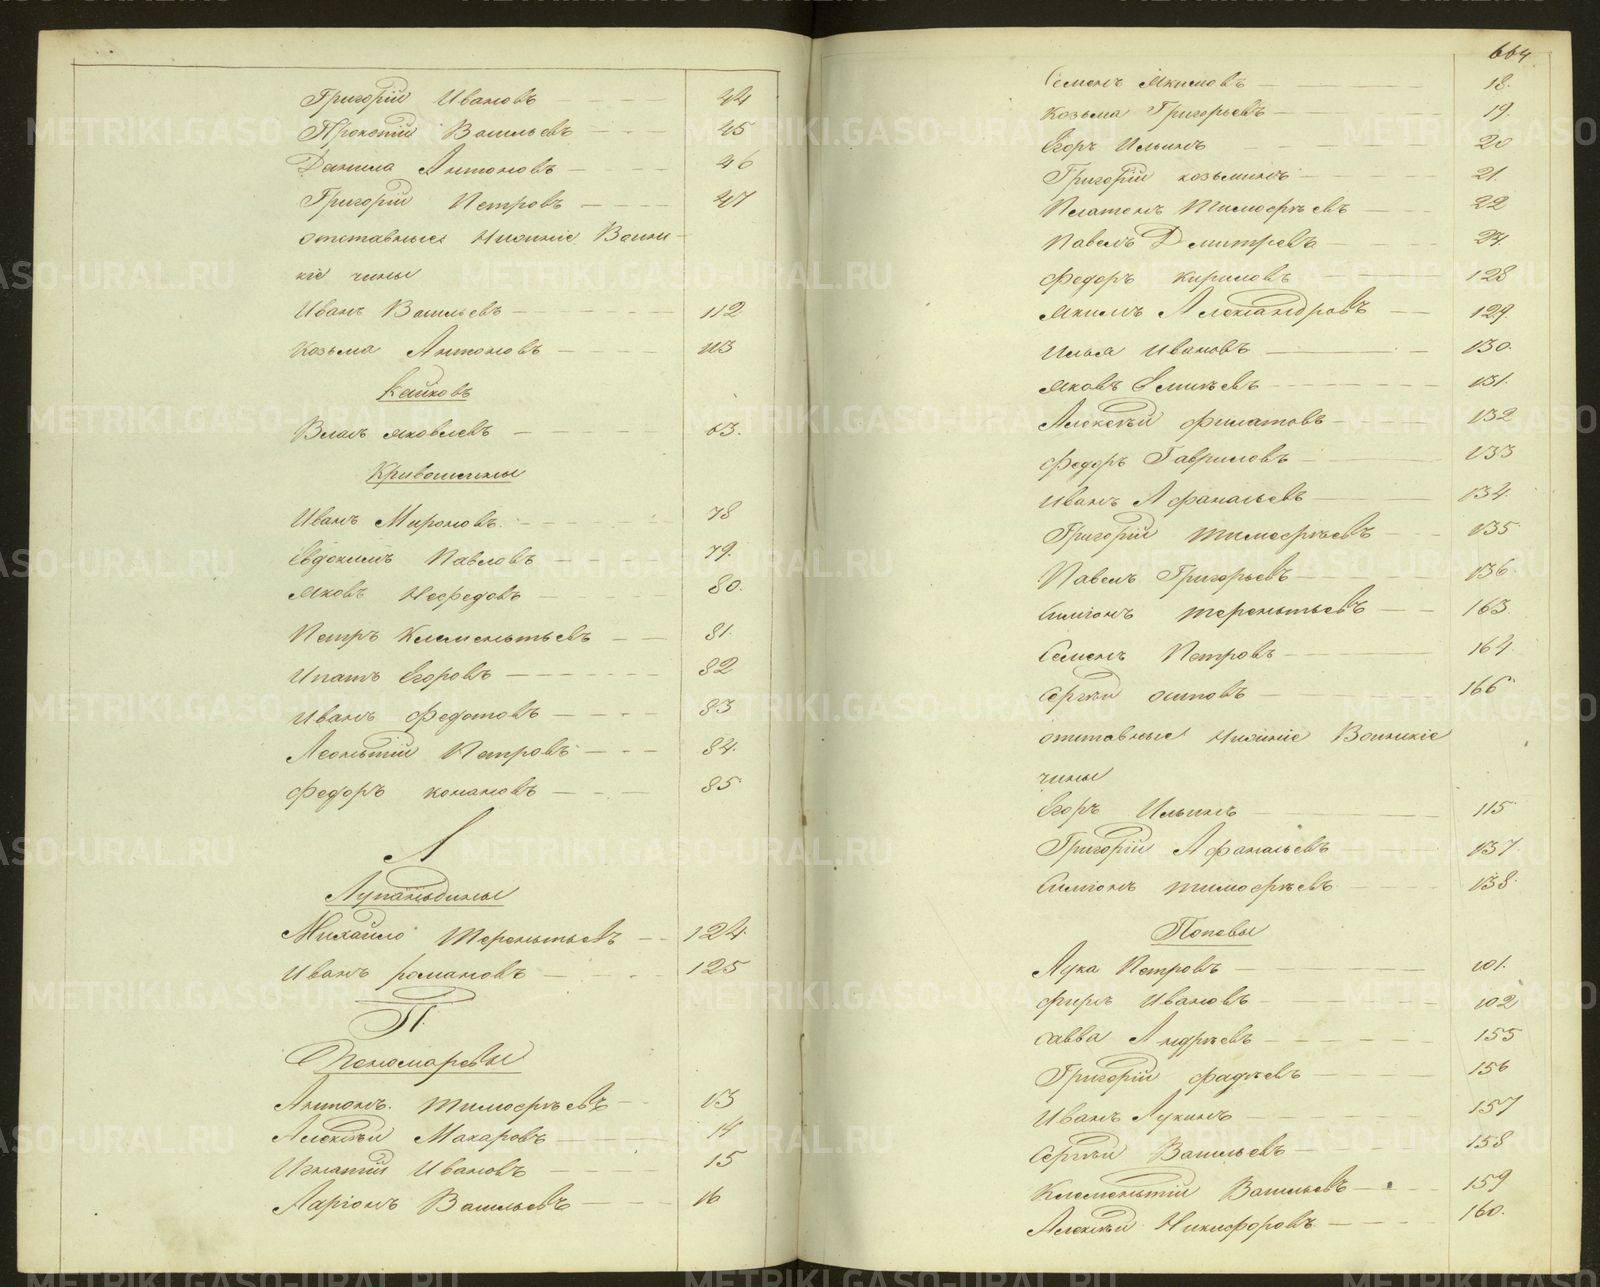 Григорій Ивановъ 44
Прокопій Васильевъ 45
Данила Антоновъ 46
Григорій Петровъ 47
отставные Нижніе Воинс-
кіе чины
Иванъ Васильевъ 112
Козьма Антоновъ 113
Кайковъ
Власъ Яковлевъ 63.
Кривошеины
Иванъ Мироновъ 78
Евдокимъ Павловъ 79.
Яковъ Нефедовъ 80.
Петръ Клементьевъ 81.
Ипатъ Егоровъ 82
Иванъ Федотовъ 83
Леонтій Петровъ 84.
Федоръ Конановъ 85
Л
Лупандины
Михайло Терентьевъ 124.
Иванъ Романовъ 125
П.
Пономаревы
Антонъ Тимофеевъ 13
Алексей Макаровъ 14
Игнатій Ивановъ 15
Ларіонъ Васильевъ 16
664.
Семенъ Якимовъ 18.
Козьма Григорьевъ 19.
Егоръ Ильинъ 20
Григорій Козьминъ 21.
Платонъ Тимофѣевъ 22
Павелъ Дмитревъ
Федоръ Кириловъ 128
Якимъ Александровъ 129.
Илья Ивановъ 130.
Яковъ 131.
Алексѣй Филатовъ 132
Федоръ Гавриловъ 133
Иванъ Афанасьевъ 134.
Григорій Тимофѣевъ 135
Павелъ Григорьевъ 136.
Симіонъ Терентьевъ 163.
Семенъ Петровъ 164.
Сергѣй Осиповъ 166
отставные Нижніе Воинскіе
чины
Егоръ Ильинъ 115
Григорій Афанасьевъ 137
Симіонъ Тимофѣевъ 138.
Поповы
Лука Петровъ 101.
Фирсъ Ивановъ 102
Савва Андреевъ 155
Григорій Фадѣевъ 156
Иванъ Лукинъ 157
Сергѣй Васильевъ 158
Клементій Васильевъ 159
Алексѣй Никифоровъ 160.
METRIKI.GASO-URAL.RU